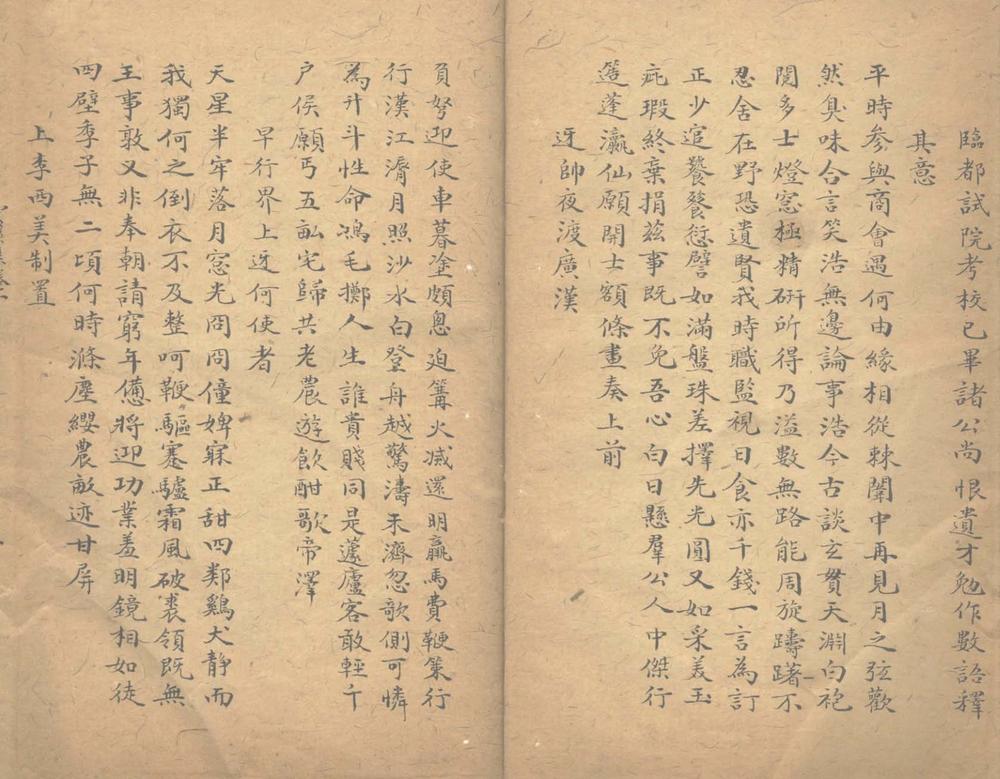 臨都試院考校已畢諸公尚恨遺才勉作數語釋
其意
平時參與商會遇何由緣相從棘闈中再見月之弦歡
然臭味合言笑浩無邊論事浩今古談玄貫天淵白袍
閱多士燈窓極精研所得乃溢數無路能周旋躊躇不
忍舍在野恐遺賢我時職監視日食亦千錢一言為訂
正少逭饔餐愆譬如滿盤珠差擇先光圓又如采美玉
疵瑕終棄捐茲事既不免吾心白日懸羣公人中傑行
簉蓬瀛仙願開士額條畫奏上前
迓帥夜渡廣漢
負弩迎使車暮塗頗悤迫篝火滅還明羸馬費鞭策行
行漢江濱月照沙水白登舟越驚濤未濟忽歌側可憐
為升斗性命鴻毛擲人生誰貴賤同是蘧廬客敢輕千
户侯願丐五畝宅歸共老農遊飲酣歌帝澤
早行界上迓何使者
天星半牢落月窓光冏冏僮婢寐正甜四鄰鷄犬靜而
我獨何之倒衣不及整呵鞭驅蹇驢霜風破裘領既無
王事敦又非奉朝請窮年憊將迎功業羞明鏡相如徒
四壁季子無二頃何時滌塵纓農畝迹甘屏
上李西美制置